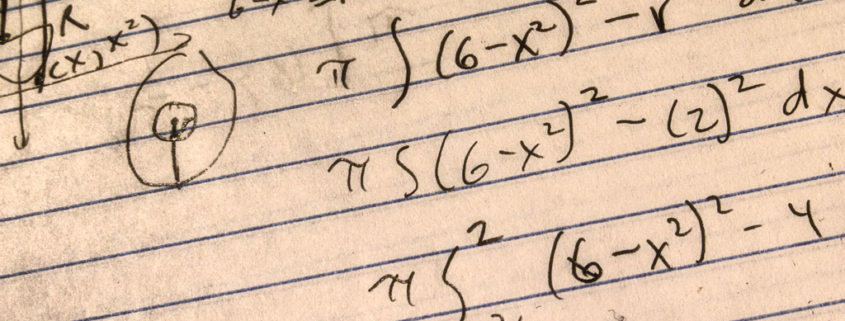 R
(x, x²)
π ∫ (6-x²)² - r
π ∫ (6-x²)² - (2)² dx
π ∫² (6-x²)² - 4